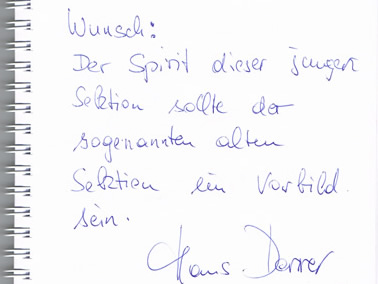 Wunsch:
Der Spirit dieser jungen
Sektion sollte der
sogenannten alten
Sektion ein Vorbild
sein.
Hans